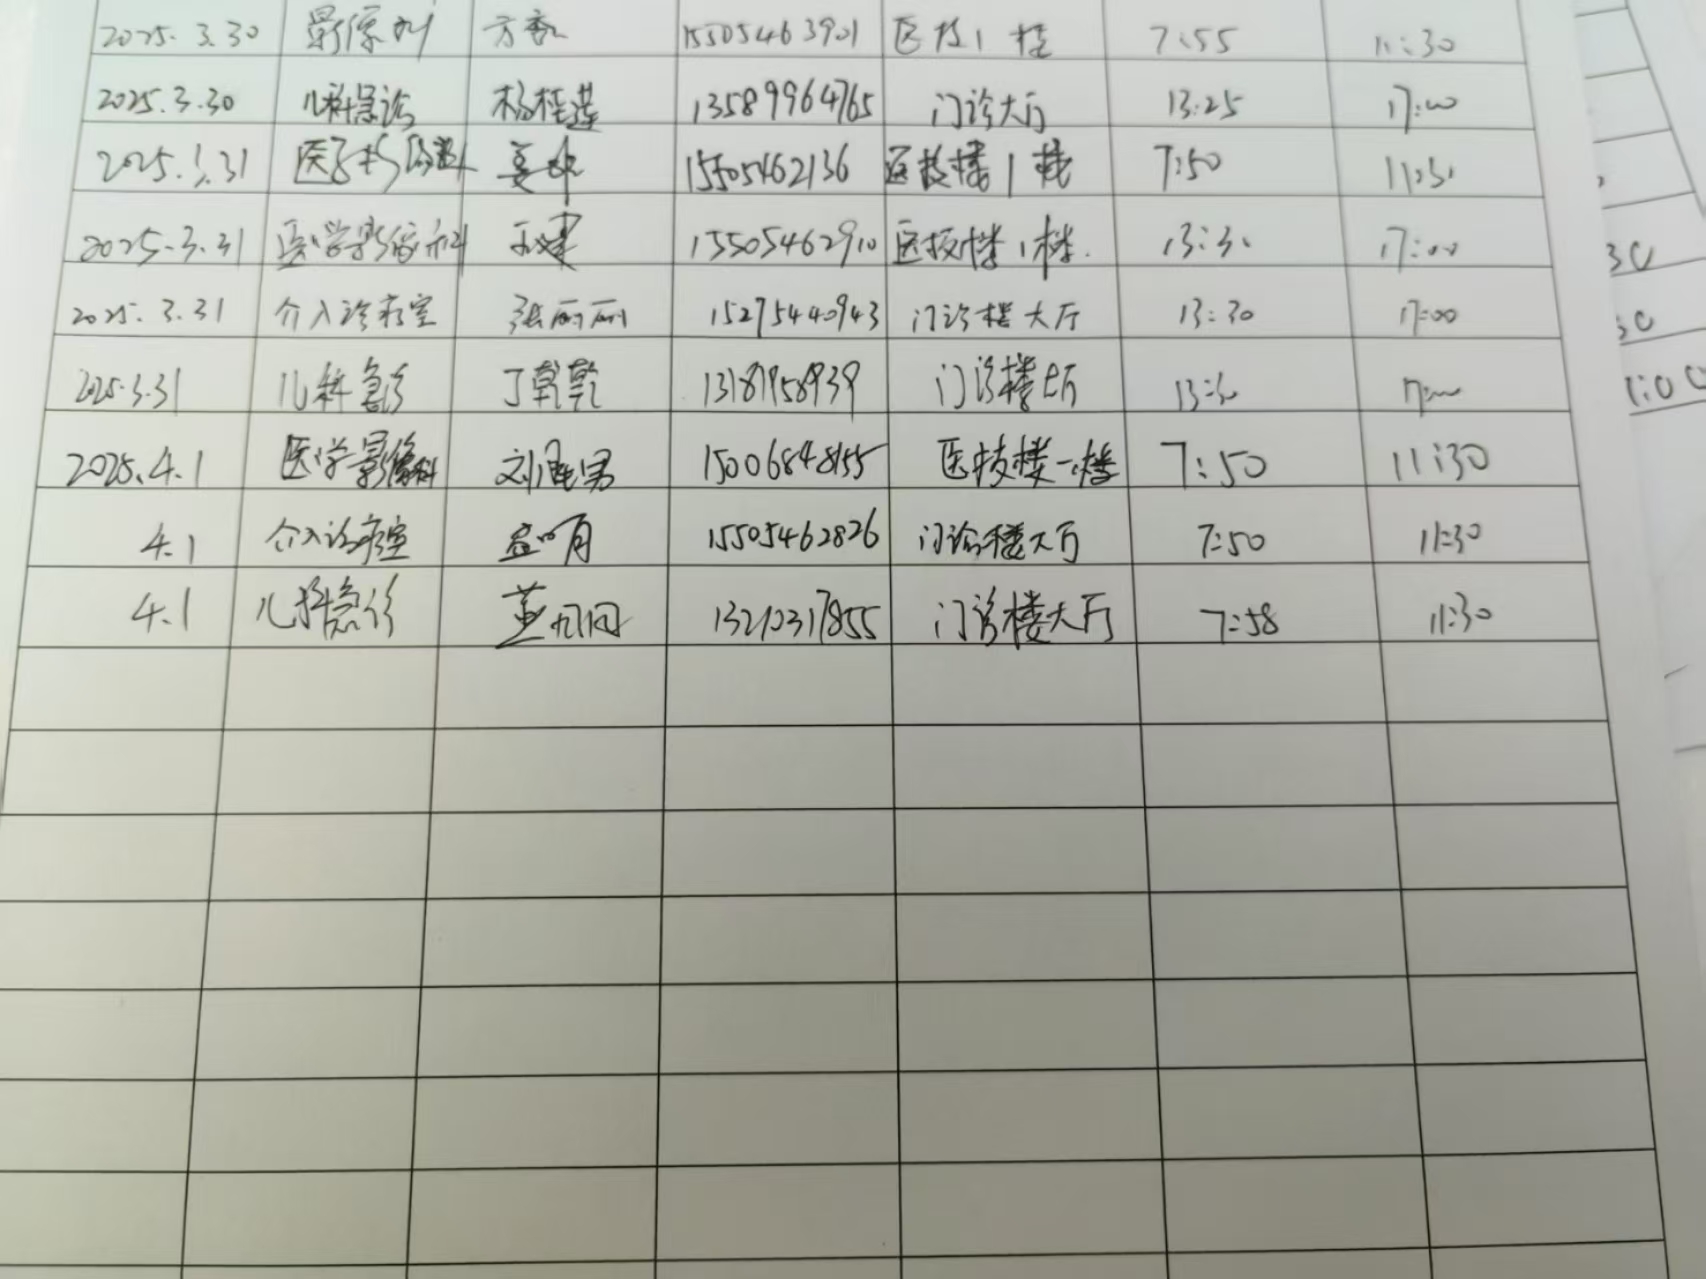 2025.3.30 影像科 15505463901 医技1楼 7:55 11:30
2025.3.30 儿科急诊 杨桂莲 13589964765 门诊大厅 13:25 17:00
2025.3.31 姜 15505462136 医技楼1楼 7:50 11:30
2025.3.31 医学影像科 王建 15505462910 医技楼1楼. 13:30 17:00
2025.3.31 介入诊疗室 张丽丽 15275440943 门诊楼大厅 13:30 17:00
2025.3.31 儿科急诊 丁乾乾 门诊楼大厅 13:30 17:00
2025.4.1 医学影像科 15006848155 医技楼一楼 7:50 11:30
4.1 介入诊疗室 15505462826 门诊楼大厅 7:50 11:30
4.1 儿科急诊 门诊楼大厅 7:58 11:30